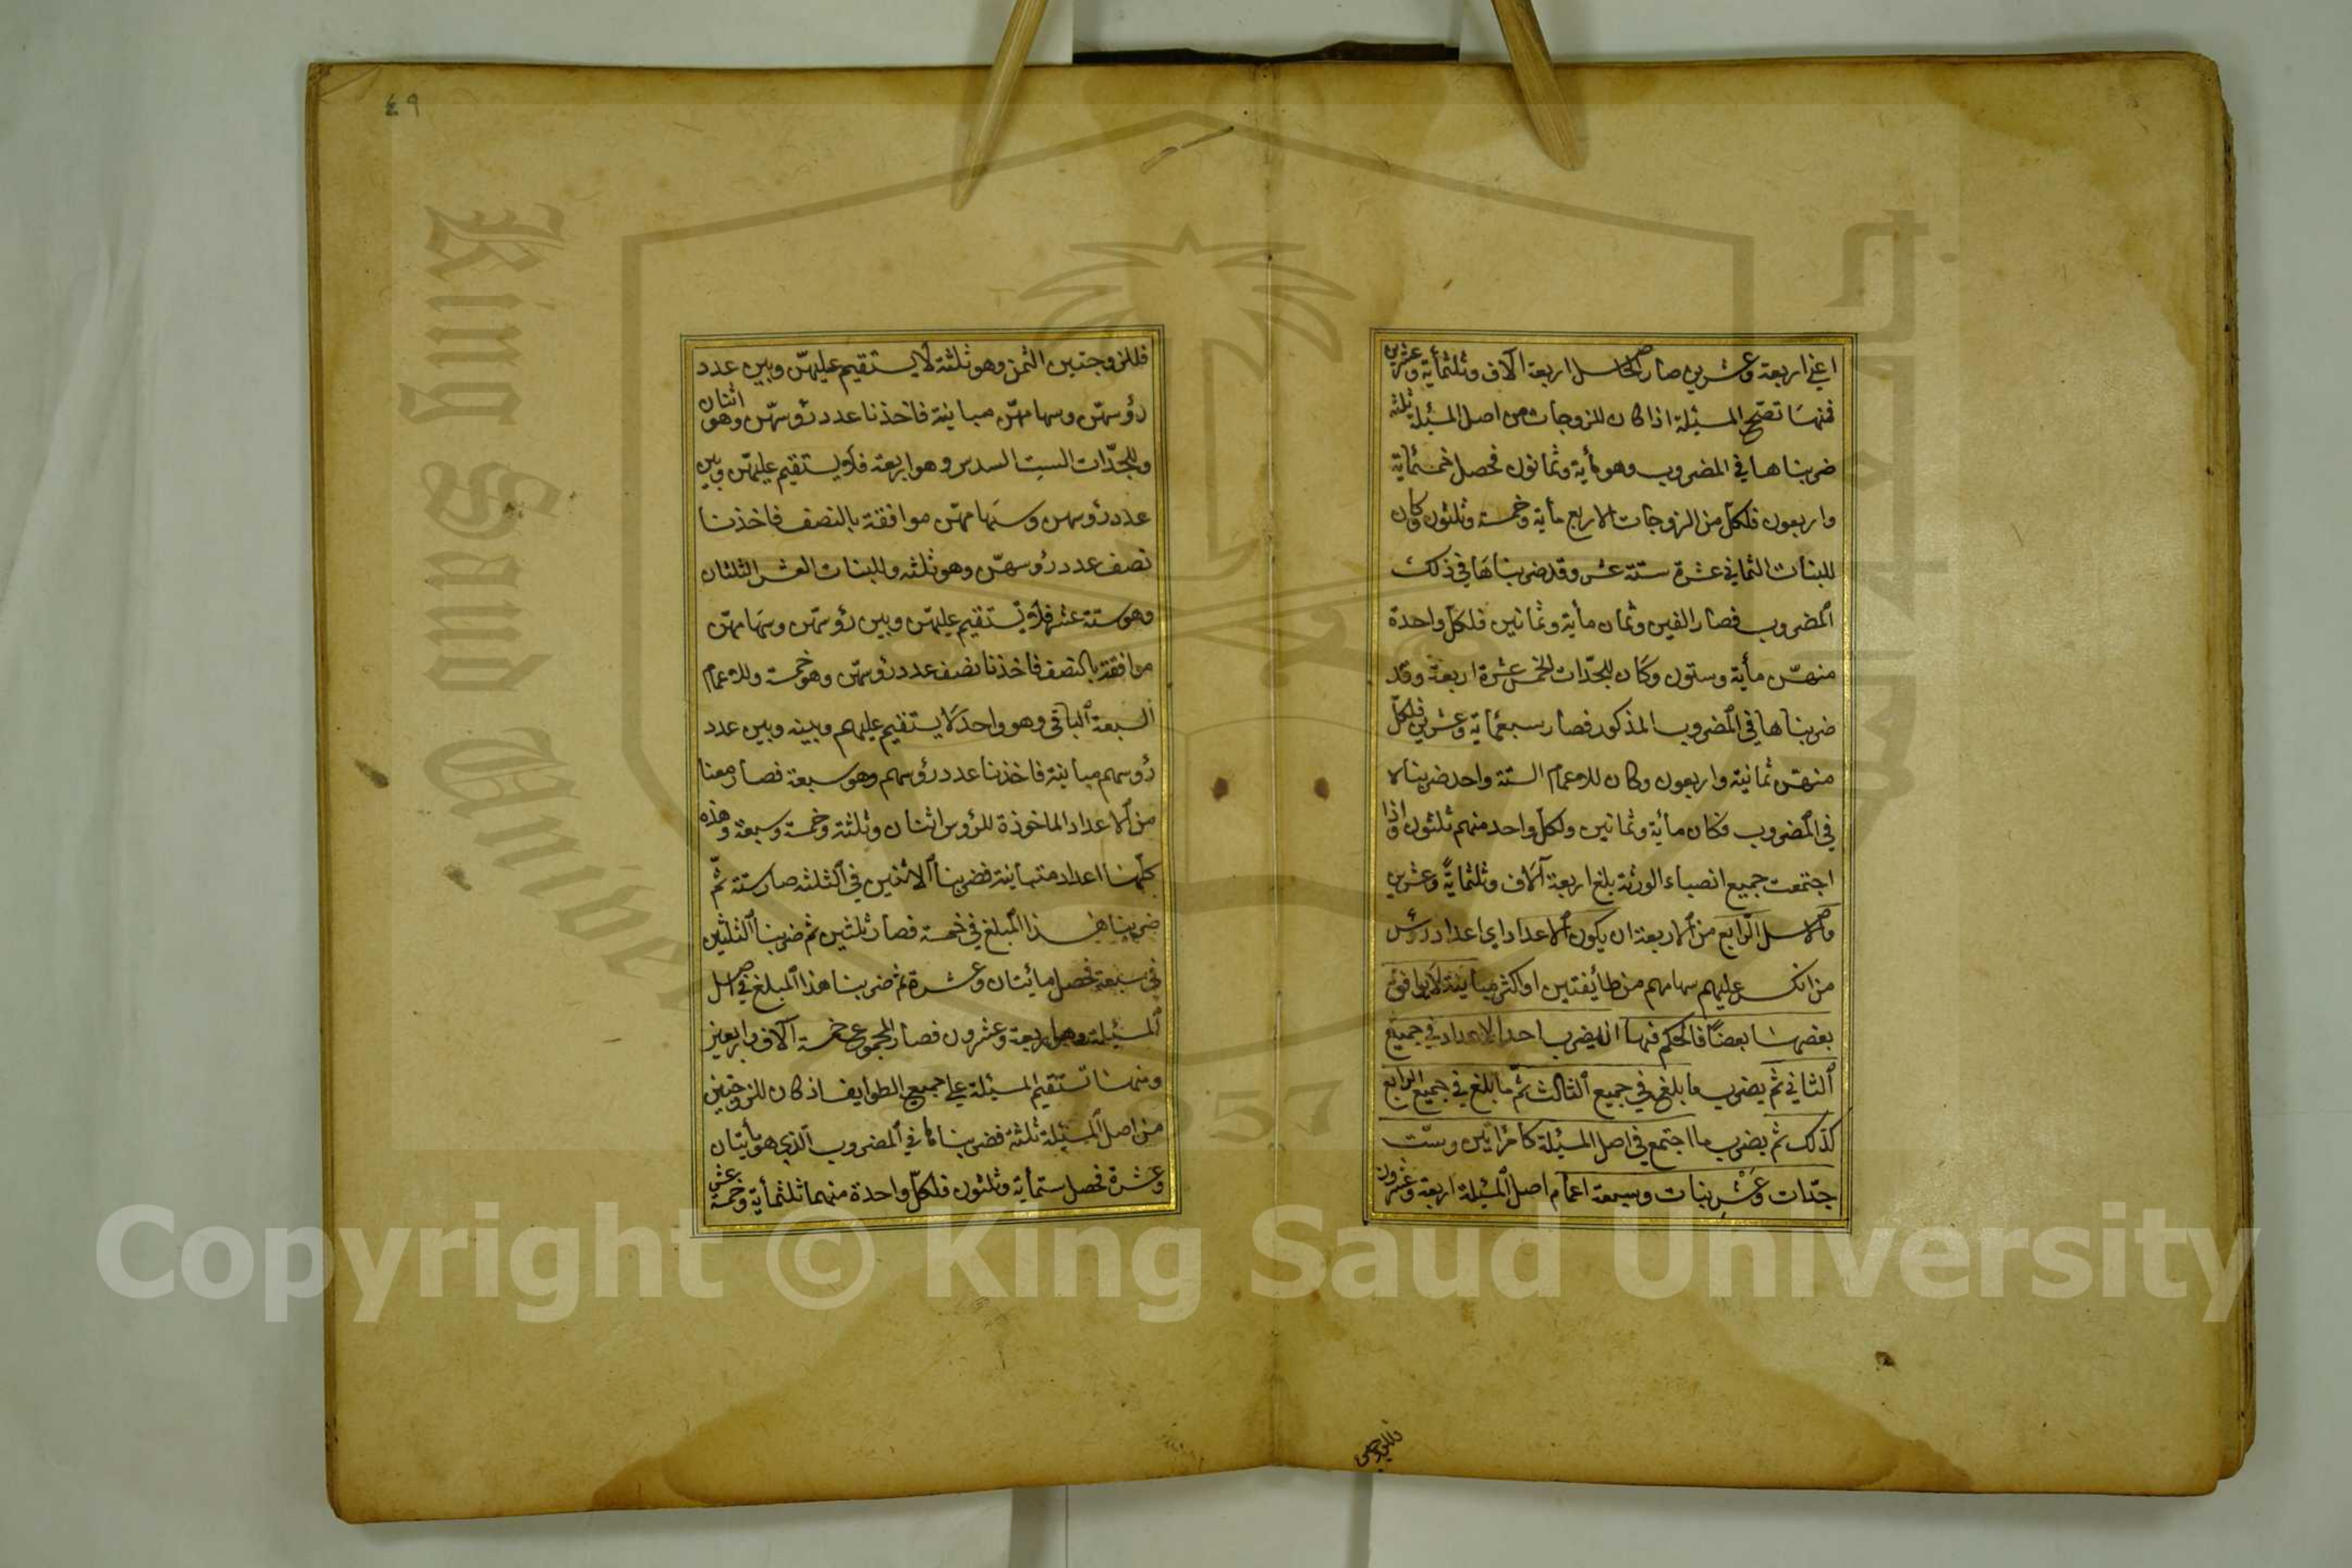 اعني اربعة وعشرين صار الحاصل اربعة آلاف وثلثمأية وعشرين
فمنها تصّح المسئلة اذا كان للزوجات من اصل المسئلة ثلثة
ضربناها في المضروب وهو مأية وثمانون فحصل خمسمأية
واربعون فلكلّ من الزوجات الاربع مأية وخمسة وثلثون وكان
للبنات الثماني عشرة ستة عشر وقد ضربناها في ذلك
المضروب فصار الفين وثمان مأية وثمانين فلكلّ واحدة
منهنّ مأية وستون وكان للجدّات الخمس عشرة اربعة وقد
ضربناها في المضروب المذكور فصار سبعمأية وعشرين فلكلّ
منهنّ ثمانية واربعون وكان للاعمام الستة واحد ضربناه
في المضروب فكان مأية وثمانين ولكلّ واحد منهم ثلثون واذا
اجتمعت جميع انصباء الورثة بلغ اربعة آلاف وثلثمايةً وعشرين
والاصل الرّابع من الاربعة ان يكون الاعداد اي اعداد رؤس
من انكسر عليهم سهامهم من طائفتين او اكثر مباينة لا يوافق
بعضها بعضًا فالحكم فيها ان يضرب احد الاعداد في جميع
الثاني ثمّ يضرب ما بلغ في جميع الثالث ثمّ ما بلغ في جميع الرابع
كذلك ثم يضرب ما اجتمع في اصل المسئلة كامرأتين وستّ
جدّات وعَشْرِ بنات وسبعة اعمام اصل المسئلة اربعة وعشرون
فللزوجتين
٤٩
فللزوجتين الثمن وهو ثلثة لا يستقيم عليهنّ وبين عدد
رؤسهنّ وسهامهنّ مباينة فاخذنا عدد رؤسهنّ وهو اثنان
وللجدّات الست السدس وهو اربعة فلا يستقيم عليهنّ وبين
عدد رؤسهن وسهامهنّ موافقة بالنصف فاخذنا
نصف عدد رؤسهنّ وهو ثلثه وللبنات العشر الثلثان
وهو ستة عشر فلا يستقيم عليهنّ وبين رؤسهنّ وسهامهنّ
موافقة بالنصف فاخذنا نصف عدد رؤسهنّ وهو خمسة وللاعمام
السبعة الباقي وهو واحد لا يستقيم عليهم وبينه وبين عدد
رؤسهم مباينة فاخذنا عدد رؤسهم وهو سبعة فصار معنا
من الاعداد الماخوذة للرؤس اثنان وثلثة وخمسة وسبعة وهذه
كلّها اعداد متباينة فضربنا الاثنين في الثلثه صار ستة ثمّ
ضربنا هذا المبلغ في خمسة فصار ثلثين ثم ضربنا الثلثين
في سبعة فحصل مأيتان وعشرة ثم ضربنا هذا المبلغ في اصل
المسئلة وهو اربعة وعشرون فصار المجموع خمسة آلاف واربعين
ومنها تستقيم المسئلة على جميع الطوايف اذ كان للزوجتين
من اصل المسئلة ثلثة فضربناها في المضروب الذي هو مأيتان
وعشرة فحصل ستمأية وثلثون فلكلّ واحدة منهما ثلثمأية وخمسة عشر
Copyright © King Saud University
King Saud Univer
1957